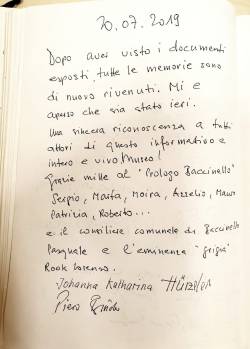 20.07.2019
Dopo aver visto i documenti
esposti, tutte le memorie sono
di nuovo rivenuti. Mi è
apparso che sia stato ieri.
Una sincera riconoscenza a tutti
attori di questo informativo e
intero e vivo Museo!
Grazie mille al "Prologo Baccinello"
Sergio, Marta, Moira, Azzelio, Mauro
Patrizia, Roberto...
e il consiliere comunale di Baccinello
Pasquale e l'eminenza "grigia"
Rook Lorenzo.
Johanna Katharina Hürzeler
Piero